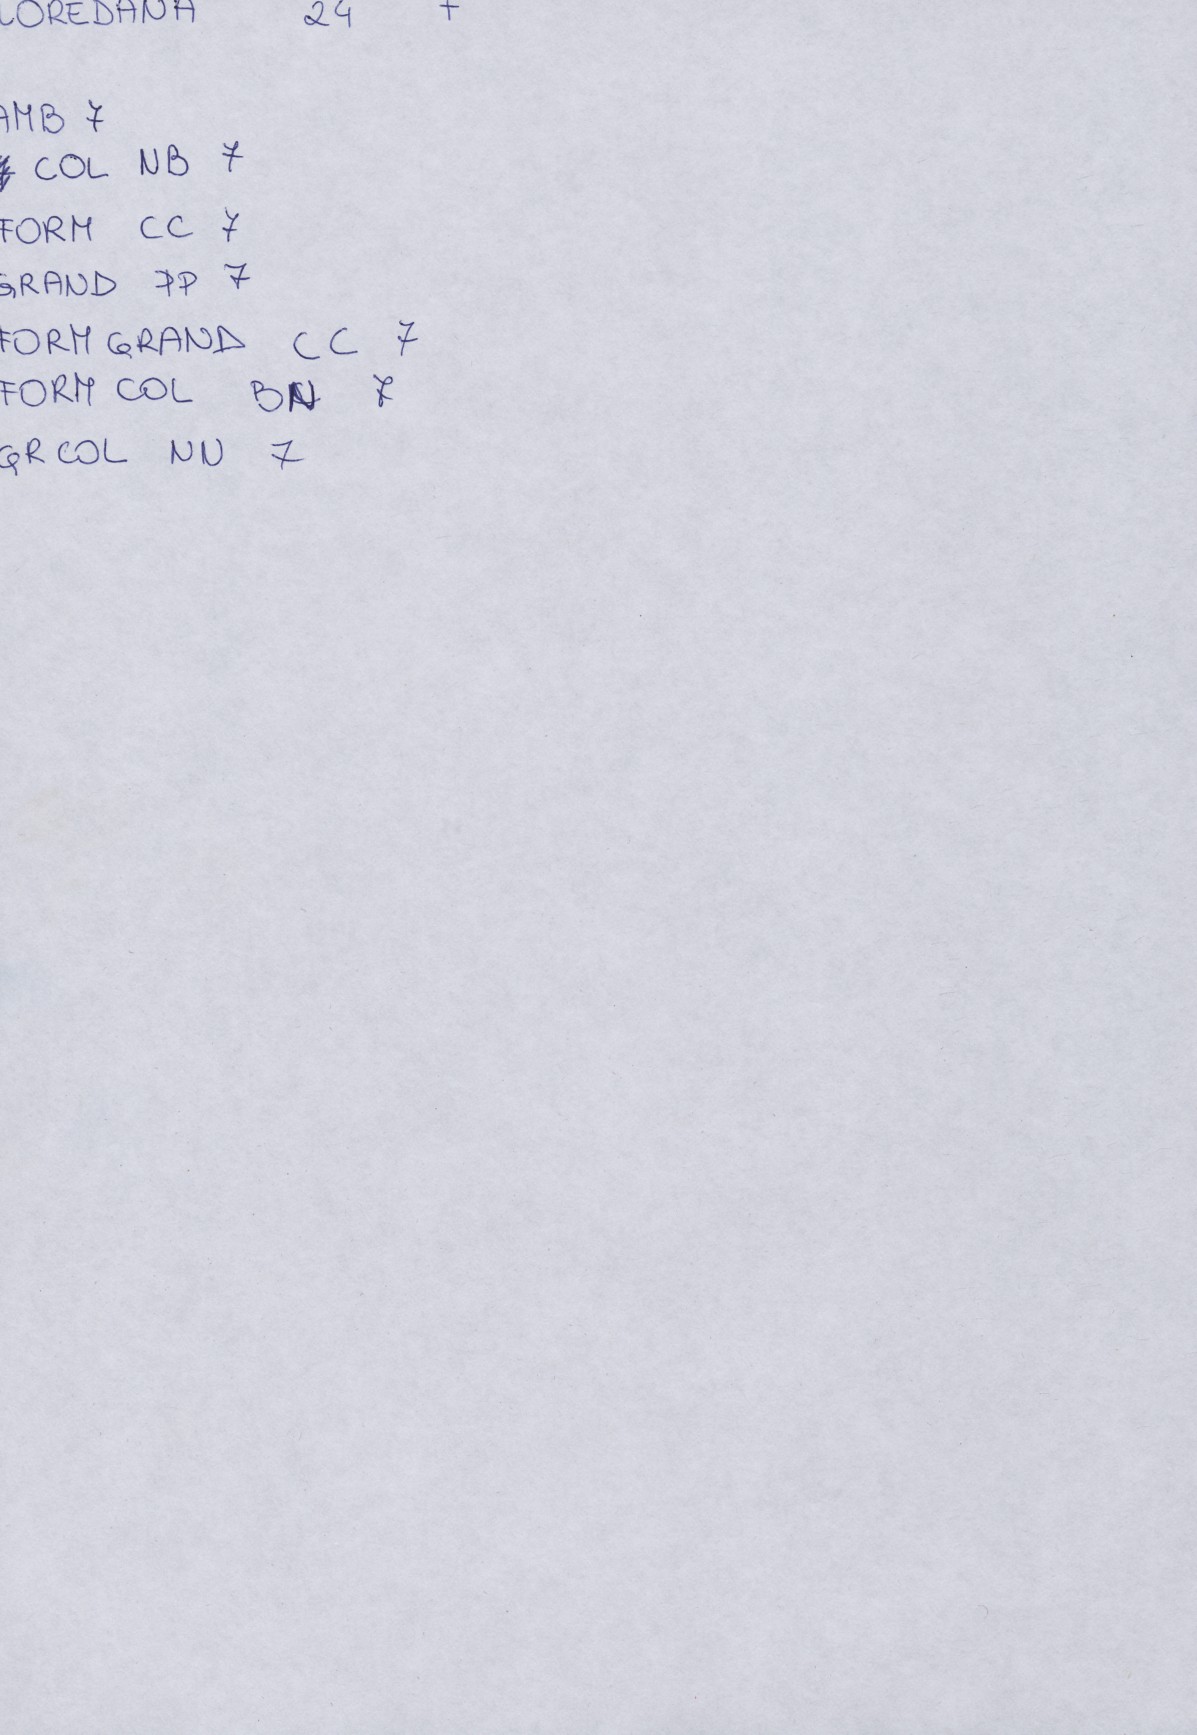 LOREDANA 24 7
AMB 7
COL NB 7
FORM CC 7
GRAND PP 7
FORM GRAND CC 7
FORM COL BN 7
GR COL NN 7